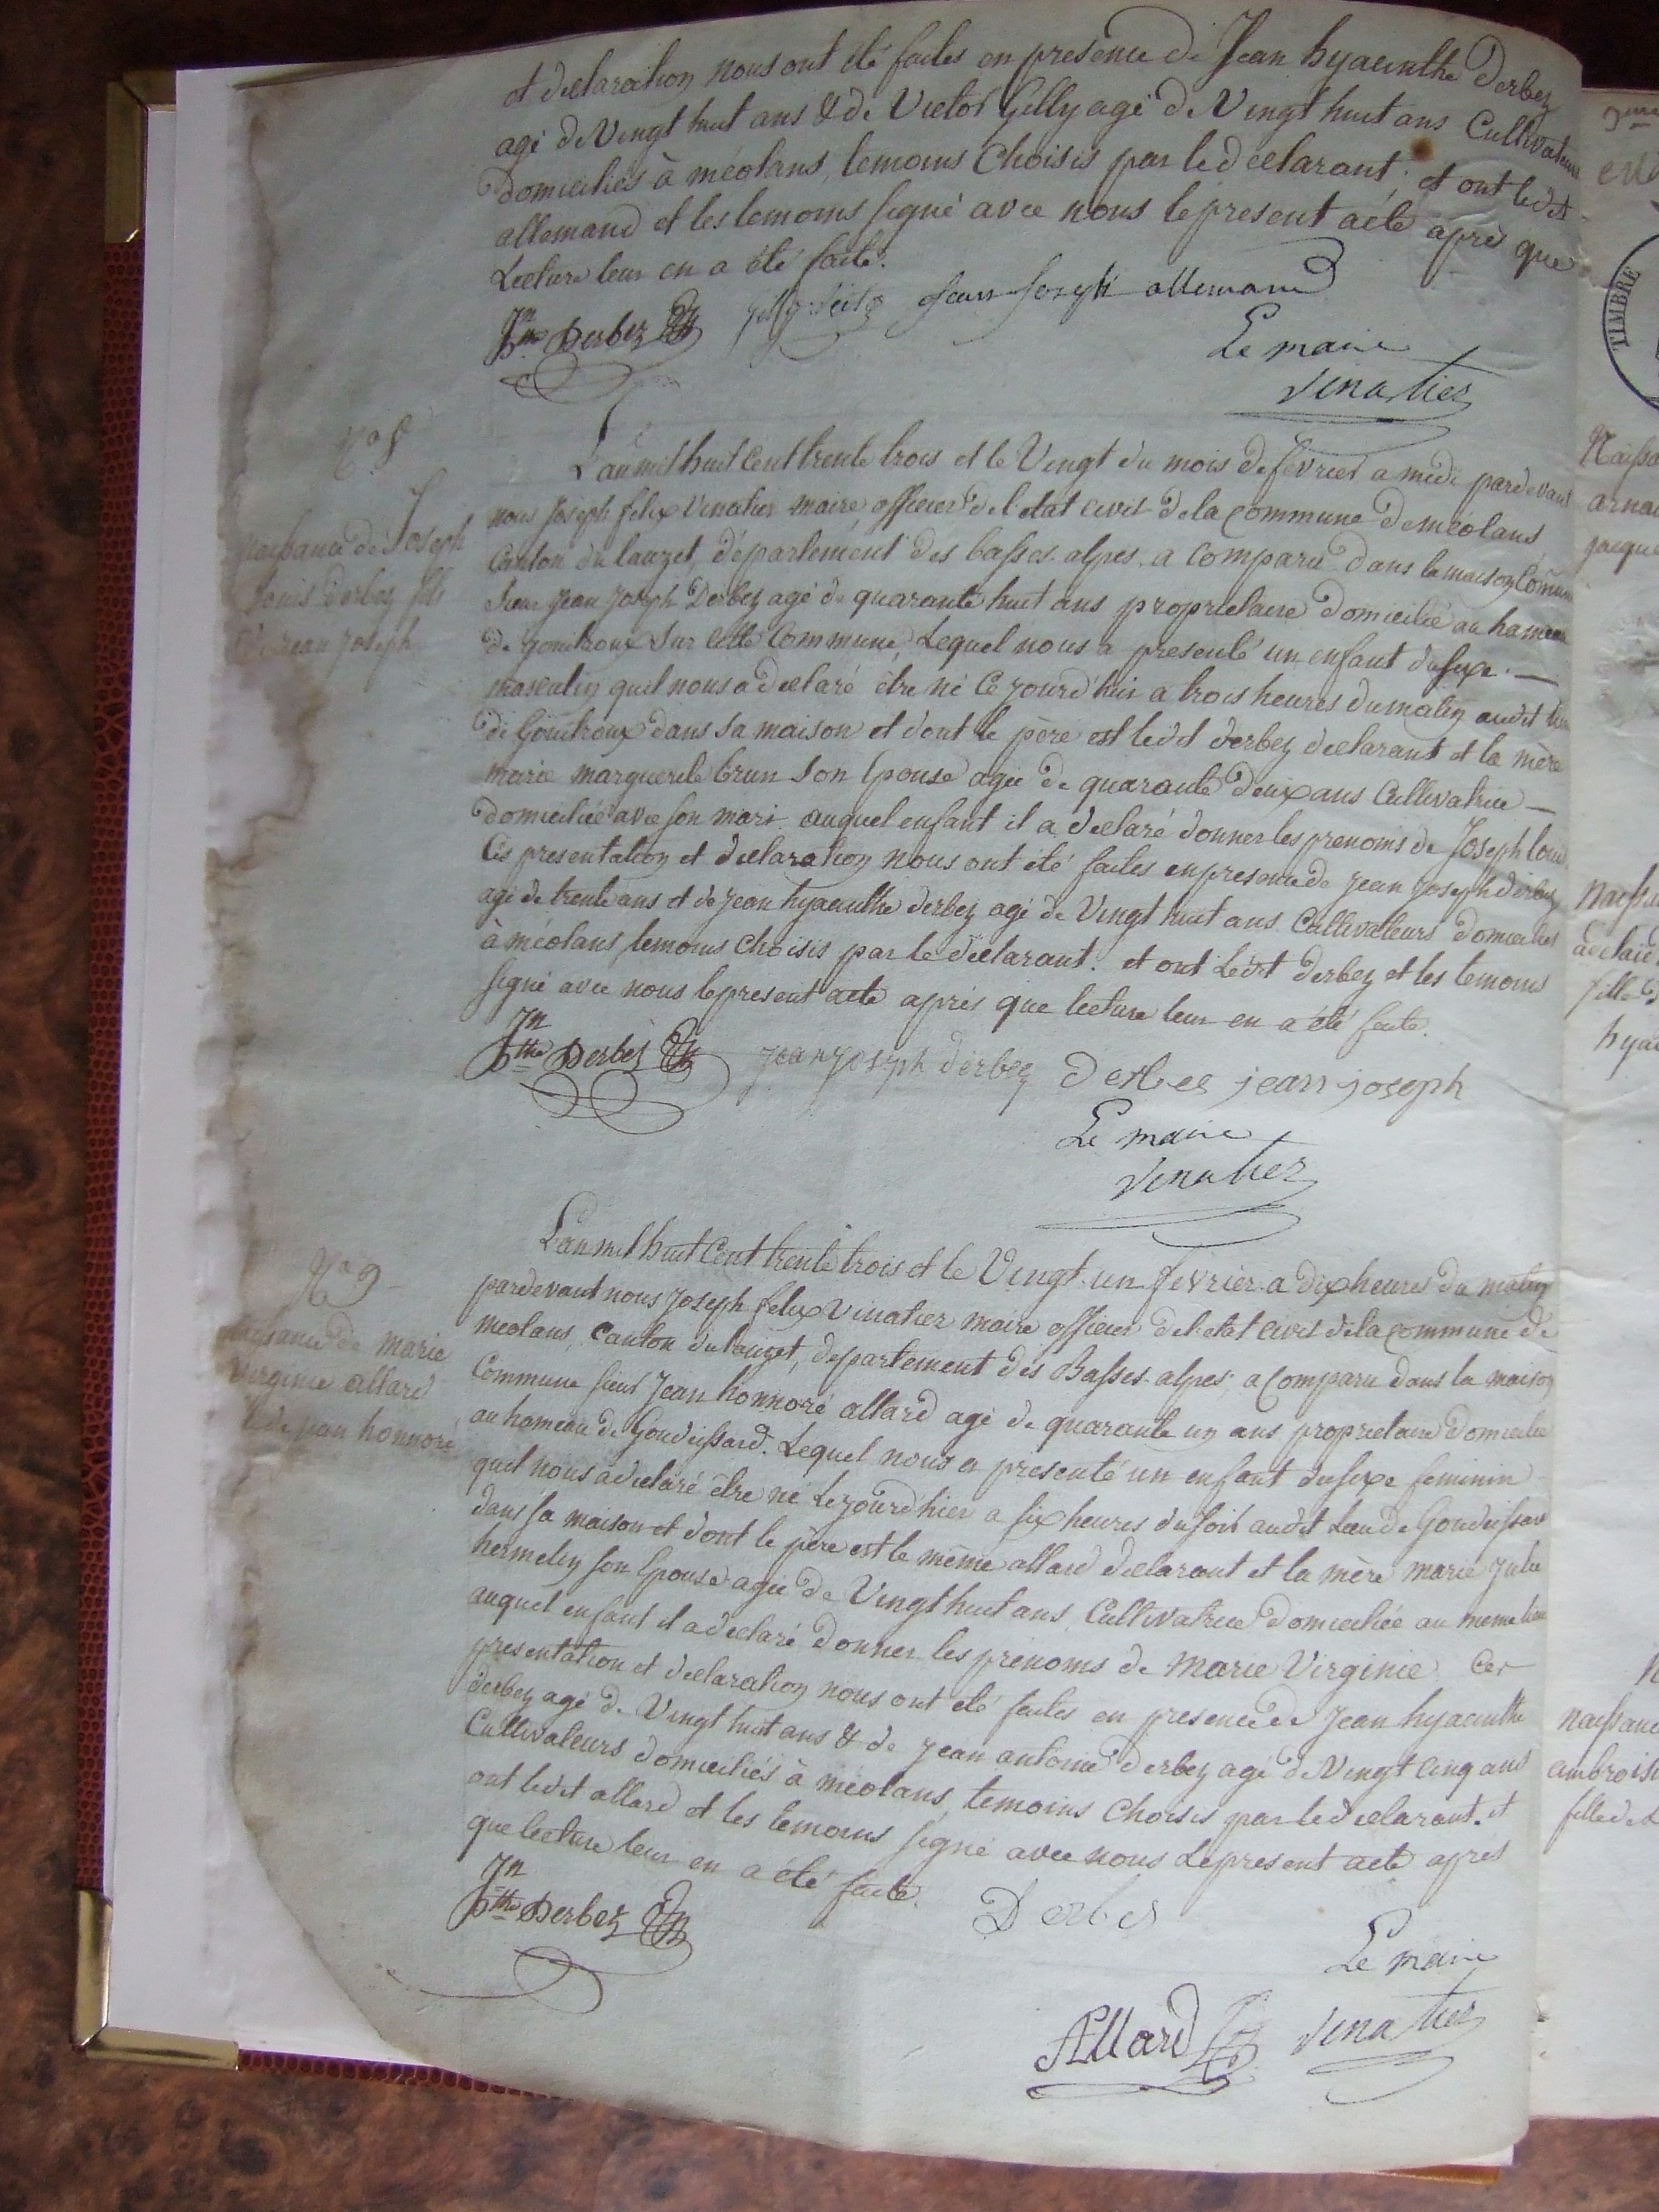 et declaration nous ont été faites en presence de Jean hyacinthe Derbez
agé de Vingt huit ans & de Victor Gilly agé de Vingt huit ans Cultivateurs
Domiciliés à méolans, temoins Choisis par le declarant; et ont ledit
allemand et les temoins signé avec nous le present acte après que
Lecture leur en a été faite.
Jn
hthe Derbez
Jean Joseph allemand
Le maire
Vinatier
No 8
Naissance de Joseph
Louis derbez fils
de jean Joseph
L'an mil huit Cent trente trois et le Vingt du mois de février a midi pardevant
nous Joseph felix Vinatier maire officier de l'etat civil de la commune de méolans
Canton du lauzet, département des basses-alpes, a comparu dans la maison Comune
sieur Jean Joseph Derbez agé de quarante huit ans proprietaire domicilié au hameau
de gouitroux sur cette Commune, Lequel nous a presenté un enfant du sexe
masculin quil nous a declaré être né Ce jourd'hui a trois heures du matin audit lieu
de Gouitroux dans sa maison et dont le père est ledit derbez declarant et la mère
marie marguerite brun son Epouse agée de quarante deux ans Cultivatrice
domiciliée avec son mari auquel enfant il a declaré donner les prenoms de Joseph louis
Ces presentation et declaration nous ont été faites en presence de jean joseph derbez
agé de trente ans et de jean hyacinthe derbez agé de Vingt huit ans Cultivateurs domiciliés
à méolans temoins choisis par le declarant. et ont ledit derbez et les temoins
signé avec nous le present acte après que lecture leur en a été faite.
Jn
hthe Derbez
jean joseph derbez
Derbes jean joseph
Le maire
Vinatier
No 9
Naissance de marie
Virginie allard
fille de jean honnoré
L'an mil huit Cent trente trois et le Vingt-un fevrier a dix heures du matin
pardevant nous Joseph felix Vinatier maire officier de l'etat civil de la commune de
meolans, Canton du lauzet, departement des Basses-alpes, a comparu dans la maison
Commune sieur Jean honnoré allard agé de quarante un ans proprietaire domicilié
au hameau de Goudeissard. Lequel nous a presenté un enfant du sexe feminin
quil nous a declaré être né Le jourd'hier a six heures du soir audit Lieu de Goudeissard
dans sa maison et dont le père est le même allard declarant et la mère marie julie
hermelin son Epouse agée de Vingt huit ans Cultivatrice domiciliée au meme lieu
auquel enfant il a declaré donner les prenoms de marie Virginie Ces
presentation et declaration nous ont été faites en presence de Jean hyacinthe
derbez agé de Vingt huit ans & de jean antoine derbez agé de Vingt cinq ans
Cultivateurs domiciliés à méolans, temoins choisis par le declarant. et
ont ledit allard et les temoins signé avec nous le present acte après
que lecture leur en a été faite.
Jn
hthe Derbez
Derbes
Le maire
Allard
Vinatier
TIMBRE